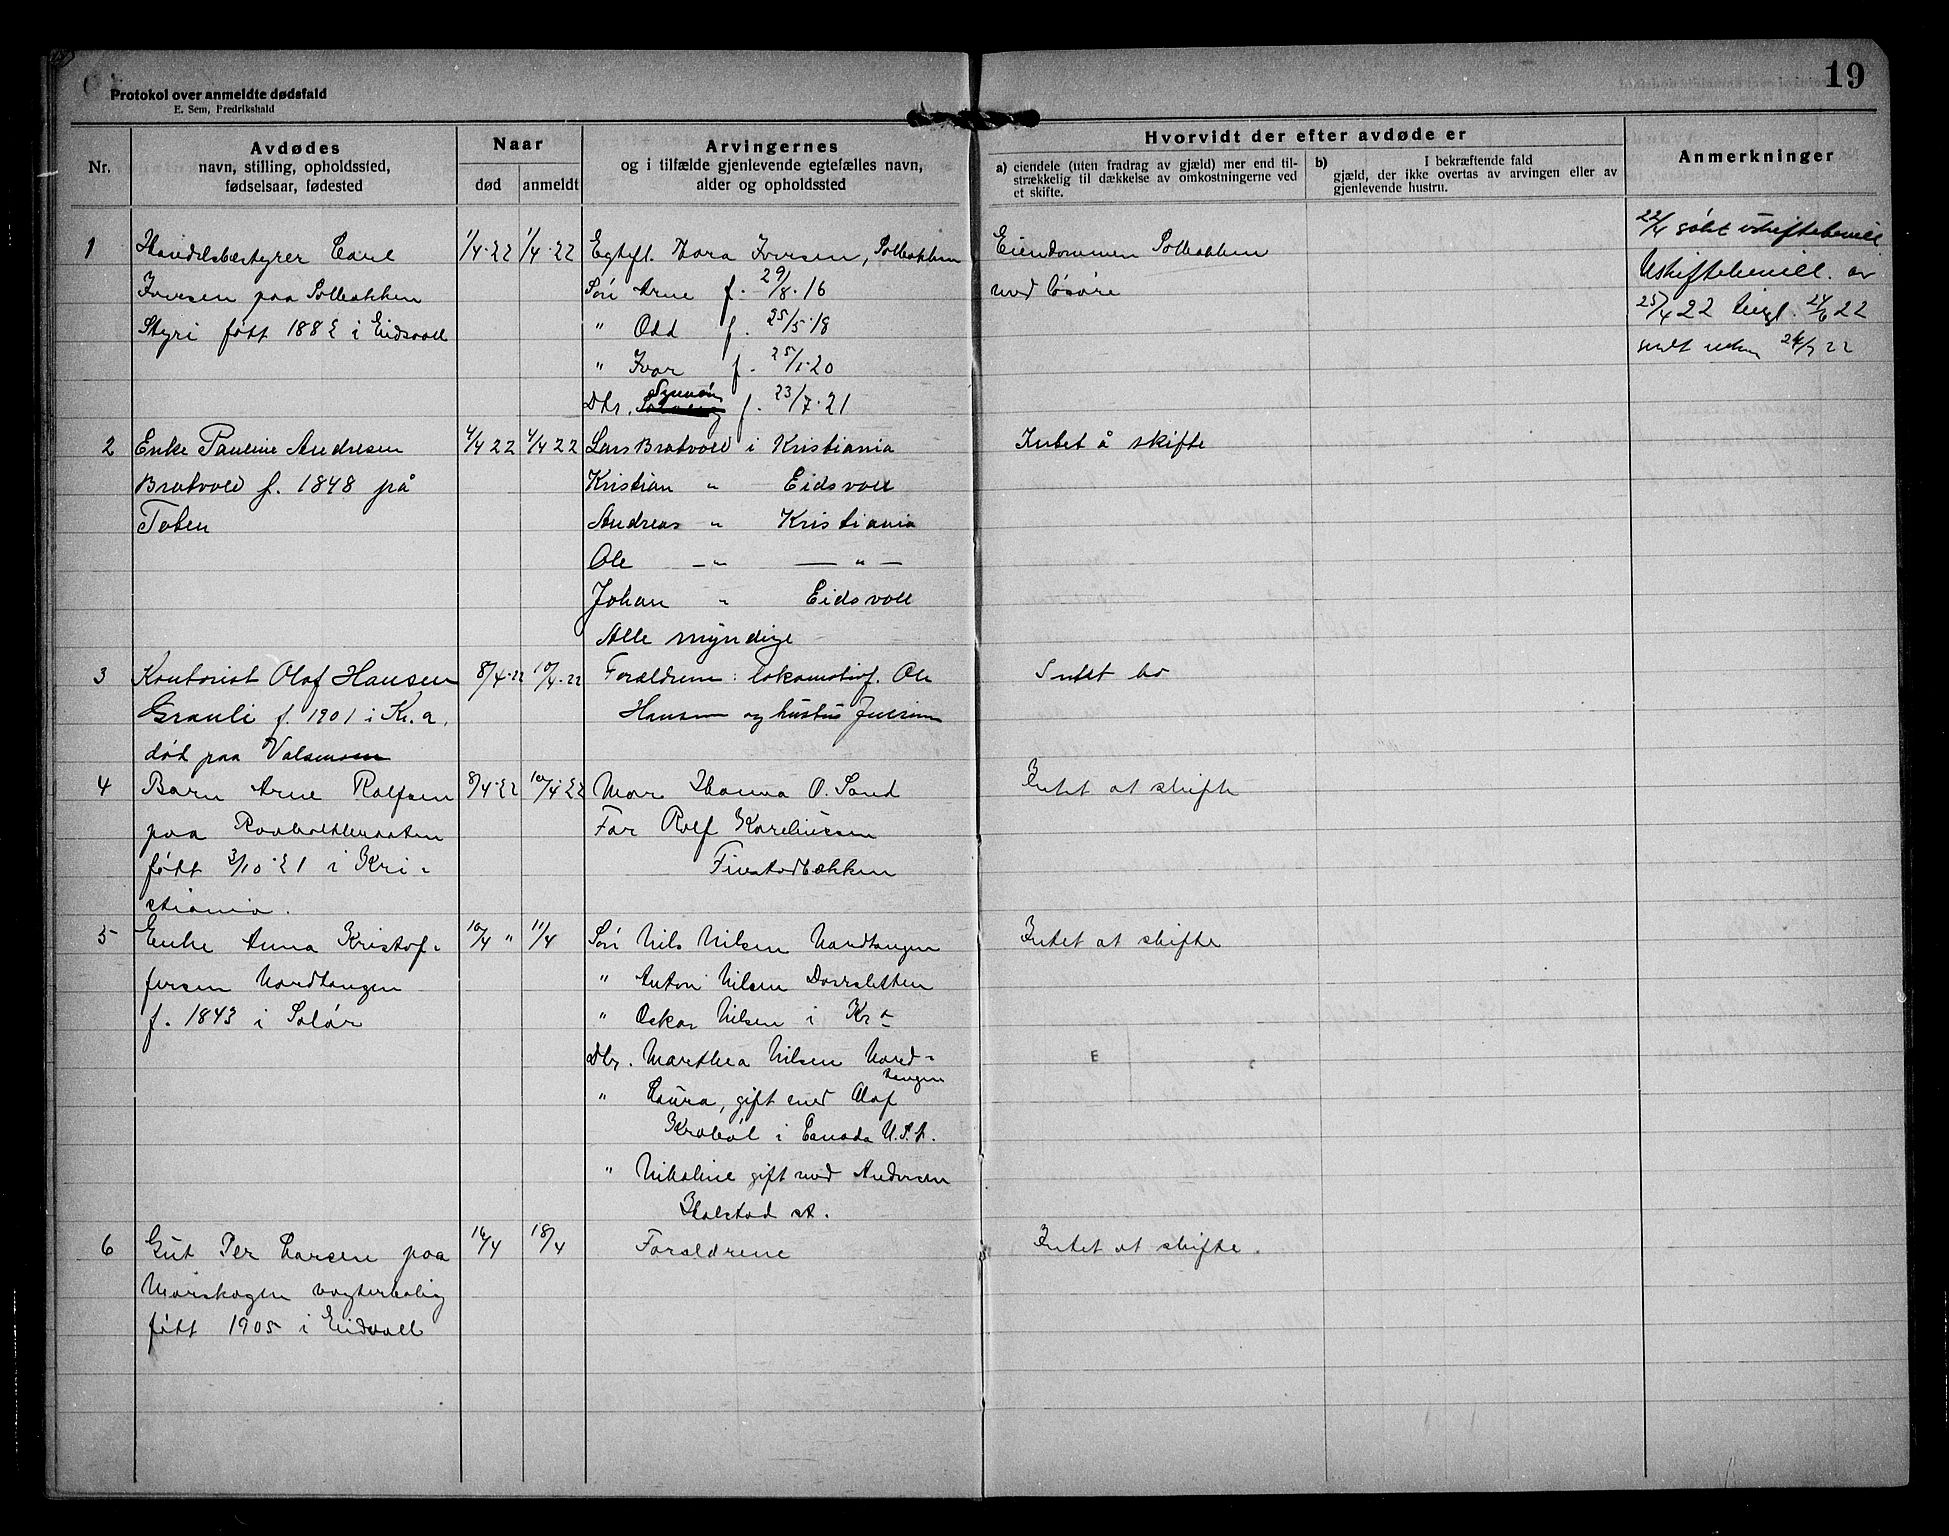 19
Protokol over anmeldte dødsfald
E. Sem, Fredrikshald
Nr.
Avdødes
navn, stilling, opholdssted,
fødselsaar, fødested
Naar
død
anmeldt
Arvingernes
og i tilfælde gjenlevende egtefælles navn,
alder og opholdssted
Hvorvidt der efter avdøde er
a) eiendele (uten fradrag av gjæld) mer end til-
strækkelig til dækkelse av omkostningerne ved
et skifte.
b) I bekræftende fald
gjæld, der ikke overtas av arvingen eller av
gjenlevende hustru.
Anmerkninger
1
Handelsbestyrer Carl
Iversen paa Solbakken
Styri født 1882 i Eidsvoll
1/4·22
1/4·22
Egtef. Thora Iversen, Solbakken
Søn Arne f. 29/8·16
" Odd f. 25/5·18
" Ivar f. 25/1·20
Dtr. Synnøv f. 23/7·21
Eiendommen Solbakken
med løsøre
22/4 søkt uskiftebevill
Uskiftebevill. av
25/4 22 tingl. 24/6 22
sendt
2
Enke Pauline Andresen
Bratvold f. 1848 på
Toten
4/4 22
4/4 22
Lars Bratvold i Kristiania
Kristian " Eidsvoll
Andreas " Kristiania
Ole —"— —"—
Johan " Eidsvoll
Alle myndige
Intet å skifte
3
Kontorist Olaf Hansen
Grauli f. 1901 i Kr.a.
død paa Valsmoen
8/4·22
10/4·22
Forældrene: lokomotivf. Ole
Hansen og hustru
Intet bo
4
Barn Arne Rolfsen
paa
født 3/10·21 i Kri-
stiania.
8/4·22
10/4·22
Mor Hanna O. Sand
Far Rolf Koreliussen
Finstadbækken
Intet at skifte
5
Enke Anna Kristof-
fersen Nordtangen
f. 1843 i Solør
10/4 "
11/4
Søn Nils Nilsen Nordtangen
" Anton Nilsen Dorrsletten
" Oskar Nilsen i Kra
Dtr. Marthea Nilsen Nord-
tangen
" Laura, gift med Olaf
Krabøl i Canada U.S.A.
" Nikoline gift med Andersen
Bolstad st.
Intet at skifte
6
Gut Per Larsen paa
Morskogen vogterbolig
født 1905 i Eidsvoll
16/4
18/4
Forældrene
Intet at skifte.